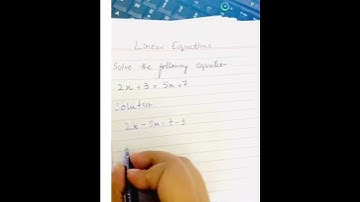 Linear Equations
Solve the following equation
2x + 3 = 5x + 7
Solution
2x - 5x = 7 - 3